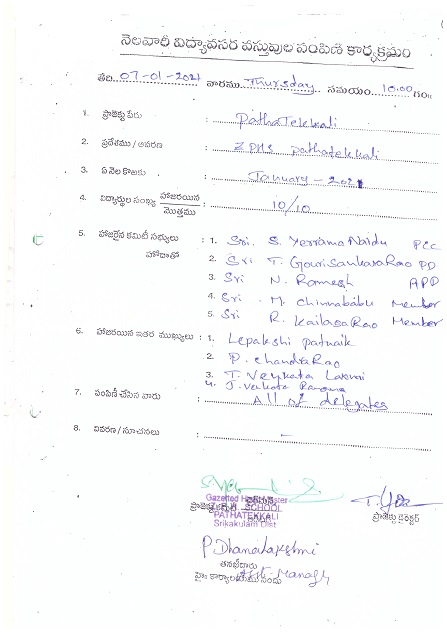 నెలవారీ విద్యావసర వస్తువుల పంపిణి కార్యక్రమం
తేది: 07-01-2021 వారము Thursday సమయం 10.00 గం॥
1. ప్రాజెక్టు పేరు : Patha Tekkali
2. ప్రదేశము / ఆవరణ : ZPHS pathatekkali
3. ఏ నెల కొఱకు : January - 2021
4. విద్యార్థుల సంఖ్య హాజరయిన / మొత్తము : 10/10
5. హాజరైన కమిటీ సభ్యులు : 1. Sri. S. Yerrama Naidu PCC
హోదాతో 2. Sri T. GouriSankaraRao PD
3. Sri N. Ramesh APD
4. Sri. M. Chinnababu Member
5. Sri R. KailasaRao Member
6. హాజరయిన ఇతర ముఖ్యులు : 1. Lepakshi patnaik
2. P. chandraRao
3. T. Venkata Laxmi
4. J. Venkata Ramana
7. పంపిణీ చేసిన వారు : All of delegates
8. వివరణ / సూచనలు : -
Gazetted Headmaster
Z.P.H. SCHOOL
PATHATEKKALI
Srikakulam Dist
ప్రాజెక్టు డైరెక్టర్
P Dhanalakshmi
తనిఖీదారు
హై, కార్యాలయము నందు